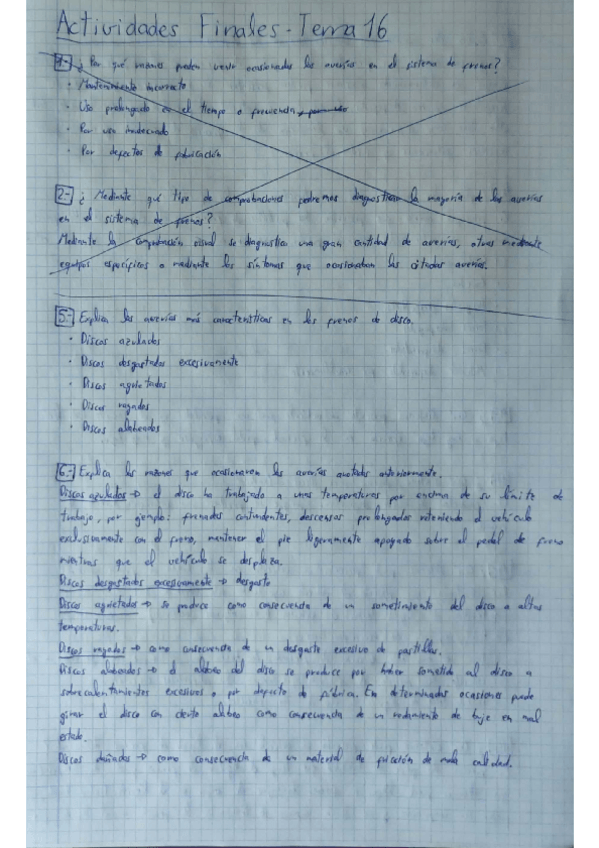 Actividades Finales - Tema 16
1- ¿Por qué razones pueden venir ocasionadas las averías en el sistema de frenos?
· Mantenimiento incorrecto
· Uso prolongado en el tiempo o frecuencia
· Por uso inadecuado
· Por defectos de fabricación
2- ¿Mediante qué tipo de comprobaciones podremos diagnosticar la mayoría de las averías
en el sistema de frenos?
Mediante la comprobación visual se diagnostica una gran cantidad de averías, otras mediante
equipos específicos o mediante los síntomas que ocasionaban las citadas averías.
5- Explica las averías más características en los frenos de disco.
· Discos azulados
· Discos desgastados excesivamente
· Discos agrietados
· Discos rayados
· Discos alabeados
6- Explica las razones que ocasionaren las averías anotadas anteriormente.
Discos azulados → el disco ha trabajado a unas temperaturas por encima de su límite de
trabajo, por ejemplo: frenados contundentes, descensos prolongados reteniendo el vehículo
exclusivamente con el freno, mantener el pie ligeramente apoyado sobre el pedal de freno
mientras que el vehículo se desplaza.
Discos desgastados excesivamente → desgaste
Discos agrietados → se produce como consecuencia de un sometimiento del disco a altas
temperaturas.
Discos rayados → como consecuencia de un desgaste excesivo de pastillas.
Discos alabeados → el alabeo del disco se produce por haber sometido al disco a
sobrecalentamientos excesivos o por defecto de fábrica. En determinadas ocasiones puede
girar el disco con cierto alabeo como consecuencia de un rodamiento de buje en mal
estado.
Discos dañados → como consecuencia de un material de fricción de mala calidad.